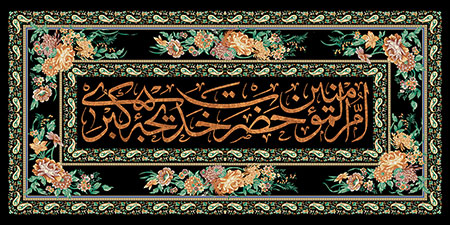 اُمّ المؤمنین حضرت خدیجه کبری